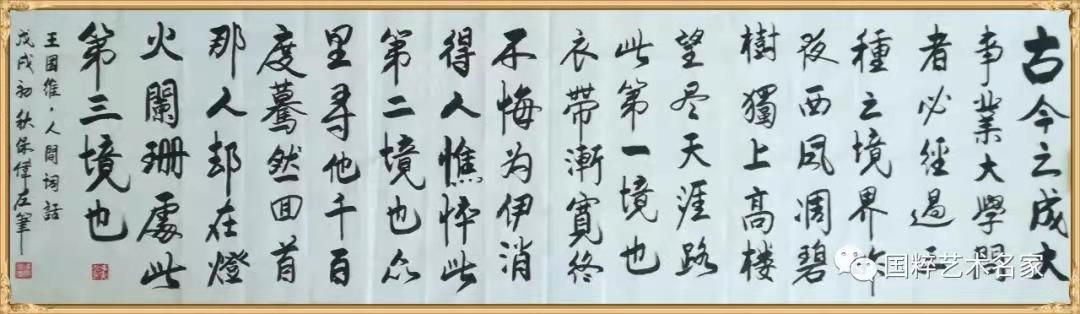 古今之成大
事業大學問
者必經過三
種之境界昨
夜西风凋碧
樹獨上高楼
望尽天涯路
此第一境也
衣带漸寬终
不悔为伊消
得人憔悴此
第二境也众
里寻他千百
度蓦然回首
那人却在燈
火闌珊處此
第三境也
王国维·人間词話
戊戌初秋保偉左筆
国粹艺术名家